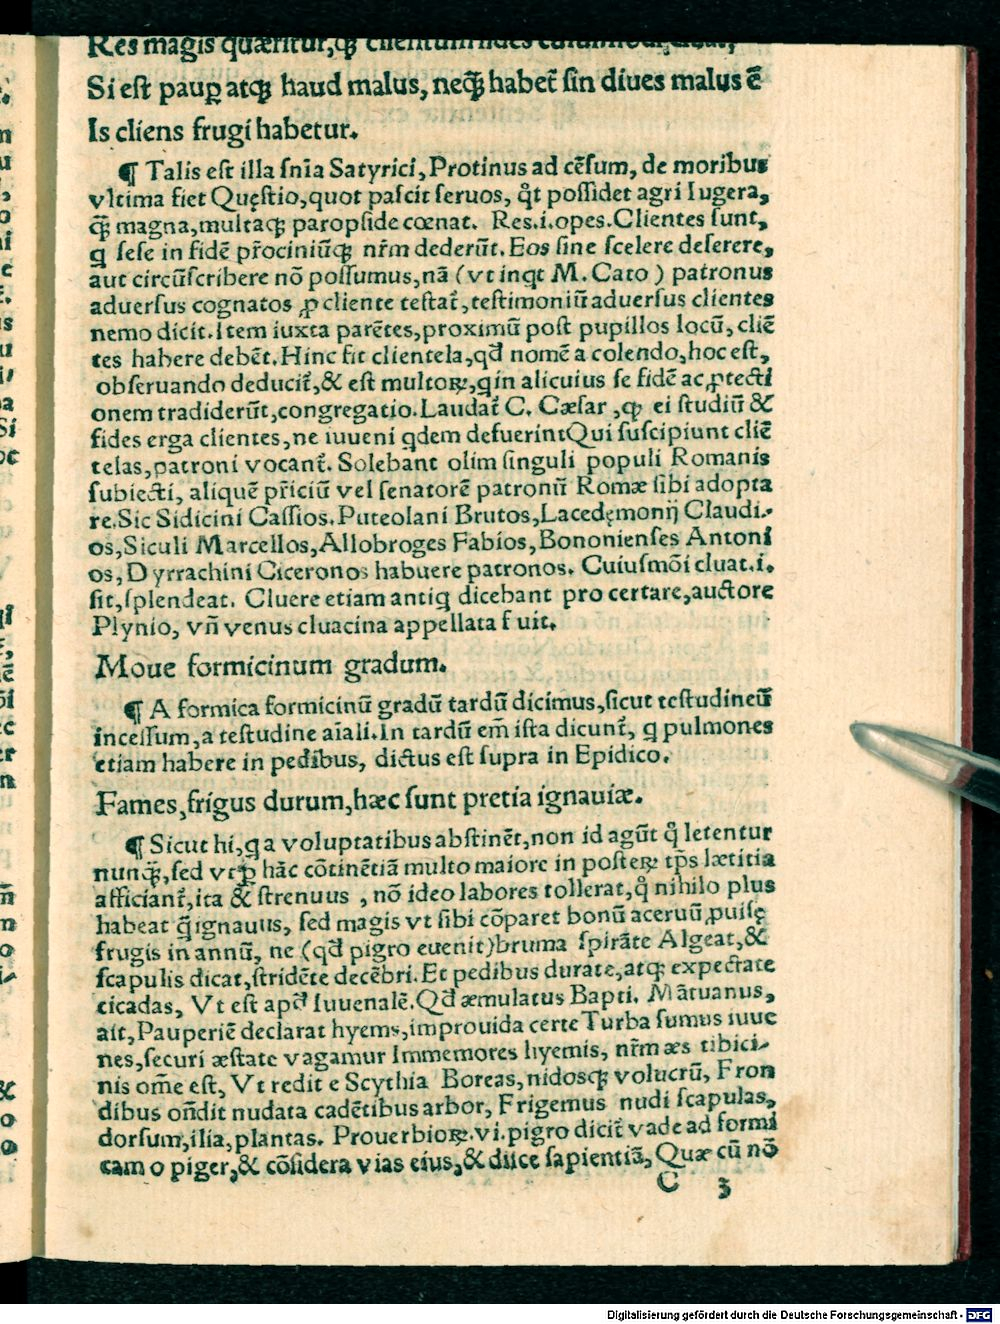 Res magis quæritur, ꝙ clientum fides
Si est paup̱ atqꝫ haud malus, neqꝫ habet̃ sin diues malus ẽ
Is cliens frugi habetur.
¶ Talis est illa snĩa Satyrici, Protinus ad cẽsum, de moribus
vltima fiet Quęstio, quot pascit seruos, q̊t possidet agri Iugera,
q̃ꝫ magna, multaqꝫ paropside cœnat. Res.i.opes. Clientes sunt,
q sese in fidẽ pr̃ociniũqꝫ nr̃m dederũt. Eos sine scelere deserere,
aut circũscribere nõ possumus, nã (vt inqt M. Cato) patronus
aduersus cognatos ꝓ cliente testat̃, testimoniũ aduersus clientes
nemo dicit. Item iuxta parẽtes, proximũ post pupillos locũ, cliẽ
tes habere debẽt. Hinc fit clientela, qđ nomẽ a colendo, hoc est,
obseruando deducit̃, & est multoꝝ, q in alicuius se fidẽ ac ꝓtecti
onem tradiderũt, congregatio. Laudat̃ C. Cæsar, ꝙ ei studiũ &
fides erga clientes, ne iuueni qdem defuerint Qui suscipiunt cliẽ
telas, patroni vocant̃. Solebant olim singuli populi Romanis
subiecti, aliquẽ pr̃iciũ vel senatorẽ patronũ Romæ sibi adopta
re. Sic Sidicini Cassios. Puteolani Brutos, Lacedęmonij Claudi⸗
os, Siculi Marcellos, Allobroges Fabios, Bononienses Antoni
os, Dyrrachini Ciceronos habuere patronos. Cuiusmõi cluat.i.
sit, splendeat. Cluere etiam antiq dicebant pro certare, auctore
Plynio, vñ venus cluacina appellata fuit.
Moue formicinum gradum.
¶ A formica formicinũ gradũ tardũ dicimus, sicut testudineũ
incessum, a testudine aĩali. In tardũ em̃ ista dicunt̃, q pulmones
etiam habere in pedibus, dictus est supra in Epidico.
Fames, frigus durum, hæc sunt pretia ignauiæ.
¶ Sicut hi, q a voluptatibus abstinẽt, non id agũt q̊ letentur
nunq̃ꝫ, sed vt ꝓ hãc cõtinẽtiã multo maiore in posteꝝ tp̃s lætitia
afficiant̃, ita & strenuus, nõ ideo labores tollerat, q̊ nihilo plus
habeat q̃ ignauus, sed magis vt sibi cõparet bonũ aceruũ ꝓuisę
frugis in annũ, ne (qđ pigro euenit) bruma spirãte Algeat, &
scapulis dicat, stridẽte decẽbri. Et pedibus durate, atqꝫ expectate
cicadas, Vt est apđ Iuuenalẽ. Qđ æmulatus Bapti. Mãtuanus,
ait, Pauperiẽ declarat hyems, improuida certe Turba sumus iuue
nes, securi æstate vagamur Immemores hyemis, nr̃m æs tibici⸗
nis om̃e est, Vt redit e Scythia Boreas, nidosqꝫ volucrũ, Fron
dibus oñdit nudata cadẽtibus arbor, Frigemus nudi scapulas,
dorsum, ilia, plantas. Prouerbioꝝ.vi. pigro dicit̃ vade ad formi
cam o piger, & cõsidera vias eius, & disce sapientiã, Quæ cũ nõ
C 3
Digitalisierung gefördert durch die Deutsche Forschungsgemeinschaft - DFG